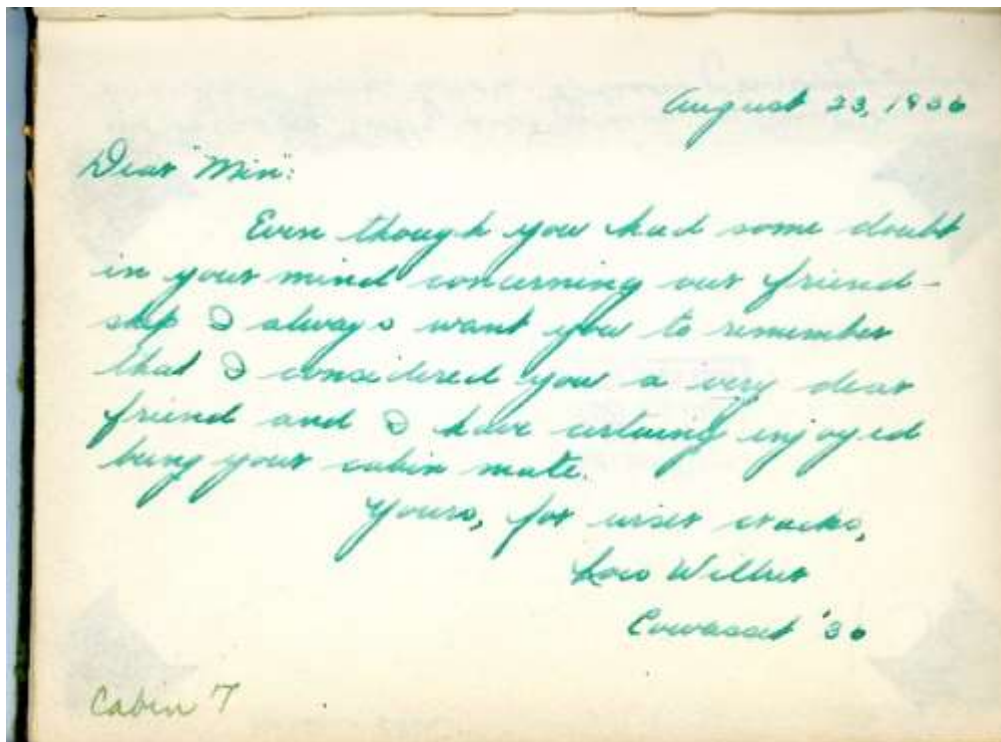 August 23, 1936
Dear "Min":
Even though you had some doubt
in your mind concerning our friend-
ship I always want you to remember
that I considered you a very dear
friend and I have certainly enjoyed
being your cabin mate.
Yours, for wiser cracks,
Lois Wilber
Cowasset '36
Cabin 7